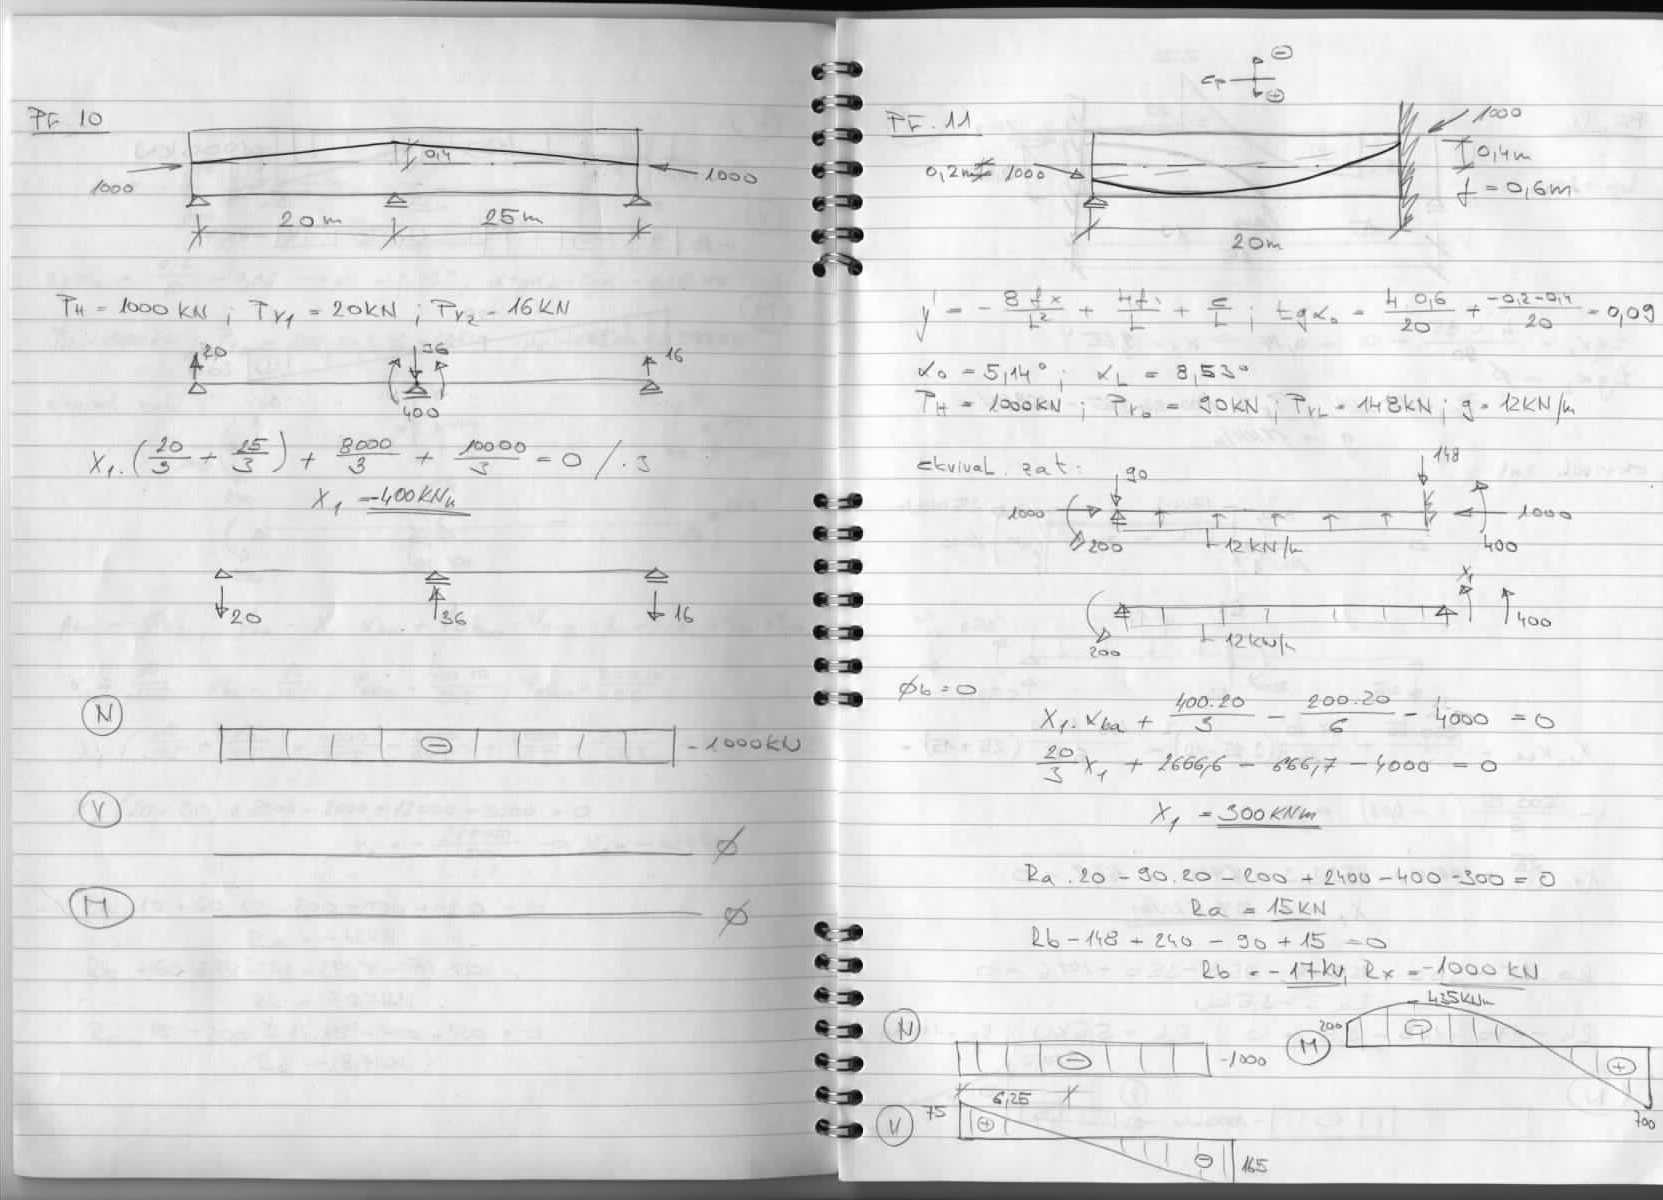 PŘ 10
0,4
1000
1000
20m 25m
P_H = 1000 KN ; P_V1 = 20KN ; P_V2 = 16KN
20 36 16
400
X₁ · (20/3 + 25/3) + 8000/3 + 10000/3 = 0 / · 3
X₁ = -400KNm
20 36 16
N ⊖ -1000KN
V ∅
M ∅
⊖
⊕
PŘ. 11
1000
0,2m 1000
0,4m
f = 0,6m
20m
y' = - 8fx/L² + 4f/L + c/L ; tg α₀ = 4·0,6/20 + -0,2-0,4/20 = 0,09
α₀ = 5,14° ; α_L = 8,53°
P_H = 1000KN ; P_V0 = 90KN ; P_VL = 148KN ; g = 12KN/m
ekvival. zat:
90 148
1000 1000
200 12KN/m 400
X₁
400
200 12KN/m
ϕb = 0
X₁ · αba + 400·20/3 - 200·20/6 - 4000 = 0
20/3 X₁ + 2666,6 - 666,7 - 4000 = 0
X₁ = 300KNm
Ra · 20 - 90 · 20 - 200 + 2400 - 400 - 300 = 0
Ra = 15KN
Rb - 148 + 240 - 90 + 15 = 0
Rb = -17KN, Rx = -1000 KN
N ⊖ -1000
M 200 ⊖ - 435KNm ⊕ 700
V 75 6,25 ⊕ ⊖ 165